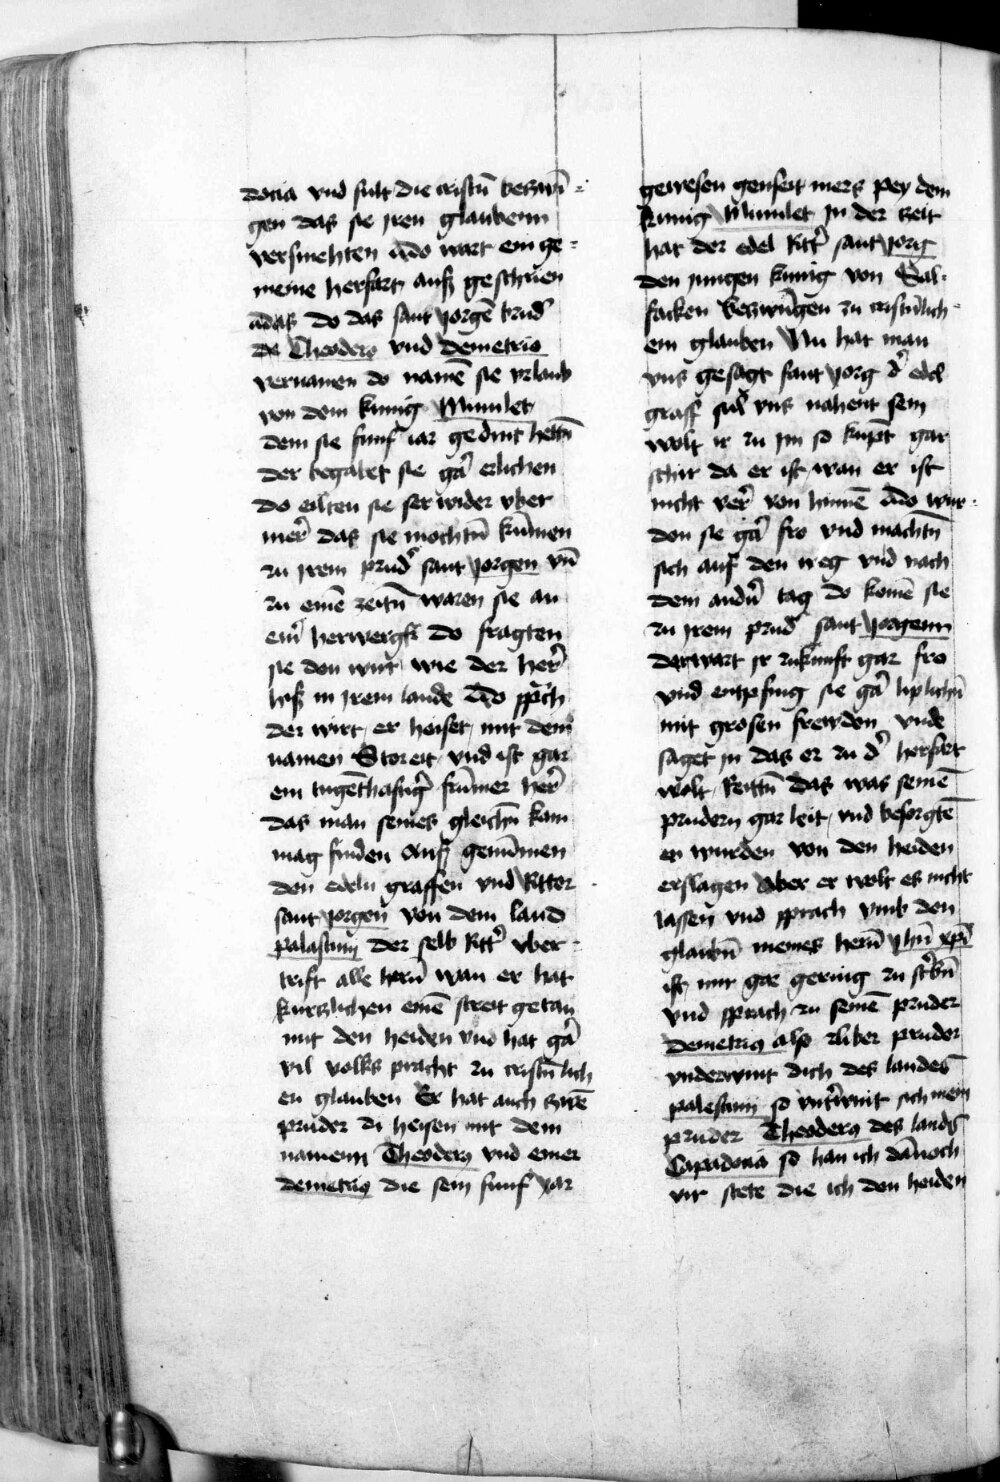 docia vnd sult die cristn̄ beczwi¯ =
gen das sie jren glaubenn
versmehten Ado wart ein ge =
meine herfart aufz geschrien
adas do das sant yorgē brud̾
de Theodero vnd demetrio
vernamen do namē sie vrlaub
von dem kunig Mumlet
dem sie funf iar gedint hettn̄
der begabet sie ga᷑ erlichen
do eilten sie ser wider vber
mer᷑ das sie mochtn̄ kūmen
zu jrem prud᷑ sant yorgen vn̄
zu einē zeitn̄ waren sie an
ein᷑ herwergk do fragten
sie den wirt wie der her᷑
hiſz in jrem lande Ado sp̄ch
der wirt er heiset mit dem
namen Storeit vnd ist gar
ein tugēthaftig᷑ frūmer her᷑
das man seines gleichn̄ kam
mag finden Aufz genūmen
den edeln graffen vnd Ritter
sant yorgen von dem land
palastinn der selb Ritt᷑ vber =
trift alle hern̄ wan er hat
kurczlichen einē streit getan
mit den heiden vnd hat ga᷑
vil volks pracht zu cristn̄lich
en glauben Er hat auch zwē
pruder di heisen mit dem
namenn Theodero vnd einer
demetrio die sein funf yar
gewesen genseit mers pey dem
kunig Mumlet Jn der zeit
hat der edel Ritt᷑ sant yorg
den jungen kunig von Sal =
facken beczwūgen zu cristn̄lich =
em glauben Nu hat man
vns gesagt sant yorg d᷑ edel
graff sul vns nahent sein
wolt ir zu jm so kupt gar
schir da er ist wan er ist
nicht ver᷑ von hinnē Ado wur =
den sie ga᷑ fro vnd machtn̄
sich auf den weg vnd nach
dem andn᷑ tag do komē sie
zu jrem prud᷑ sant yorgenn
der wart jr zukunft gar fro
vnd entpfing sie ga᷑ liplichn̄
mit grosen frewden vnde
saget jn das er zu d᷑ herfart
wolt Reittn̄ das was seinē
prudern gar leit vnd besorgtē
er wurden von den heiden
erslagen Aber er wolt es nicht
lassen vnd sprach vmb den
glaubn̄ meines hern̄ yhū xp̄i
ist mir gar gering zu st᷑bn̄
vnd sprach zu seinē pruder
Demetrio also zliber pruder
vnderwint dich des landes
palestinn so vnt᷑wint sich mein
pruder Theodero des lands
Capadocia so han ich dānoch
vir stete die ich den heiden